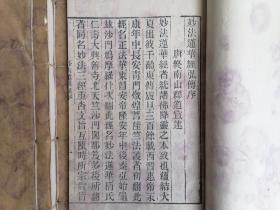 妙法蓮華經弘傳序
唐終南山釋道宣述
妙法蓮華經者統諸佛降靈之本致也蘊結大
夏出彼千齡東傳震旦三百餘載西晉惠帝永
康年中長安青門燉煌菩薩竺法護者初翻此
經名正法華東晉安帝隆安年中後秦弘始龜
茲沙門鳩摩羅什次翻此經名妙法蓮華隋氏
仁壽大興善寺北天竺沙門闍那笈多後所翻
者同名妙法三經重沓文旨互陳時所宗尚皆